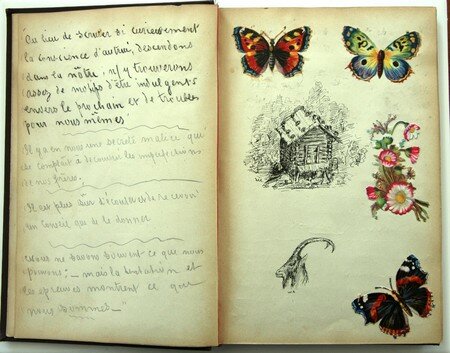 "Au lieu de scruter si curieusement
la conscience d'autrui, descendons
dans la nôtre; n/y trouverons
assez de motifs d'être indulgents
envers le prochain et de troubles
pour nous mêmes
Il y a en nous une secrète malice qui
se complait à découvrir les imperfections
de nos frères.
Il est plus sûr d'écouter et de recevoir
un conseil que de le donner
Nous ne savons souvent ce que nous
pouvons; — mais la tentation et
les épreuves montrent ce que
nous sommes —"